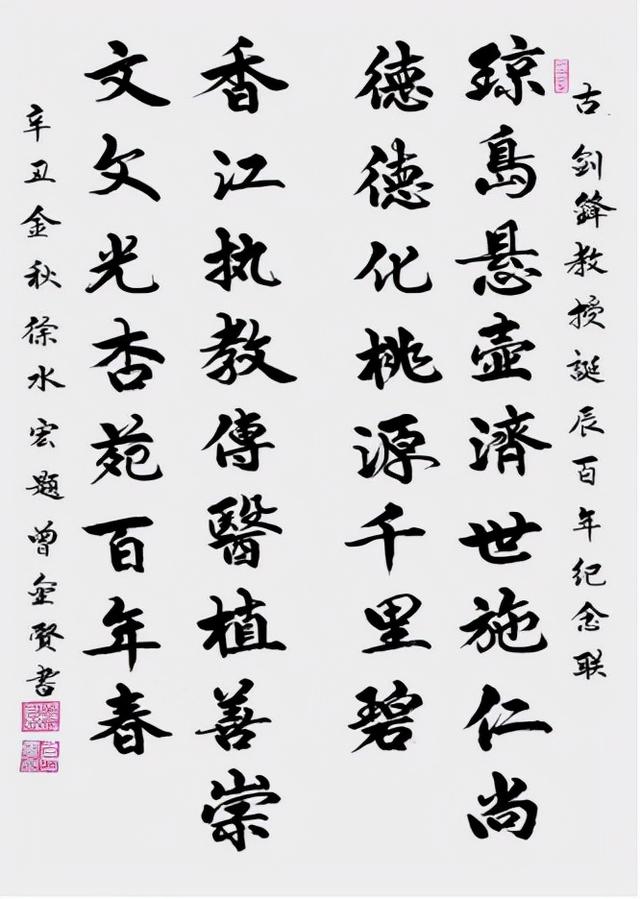 古剑鋒教授誕辰百年纪念联
琼島悬壶濟世施仁尚
德德化桃源千里碧
香江执教傳醫植善崇
文文光杏苑百年春
辛丑金秋徐水宏题曾金賢书